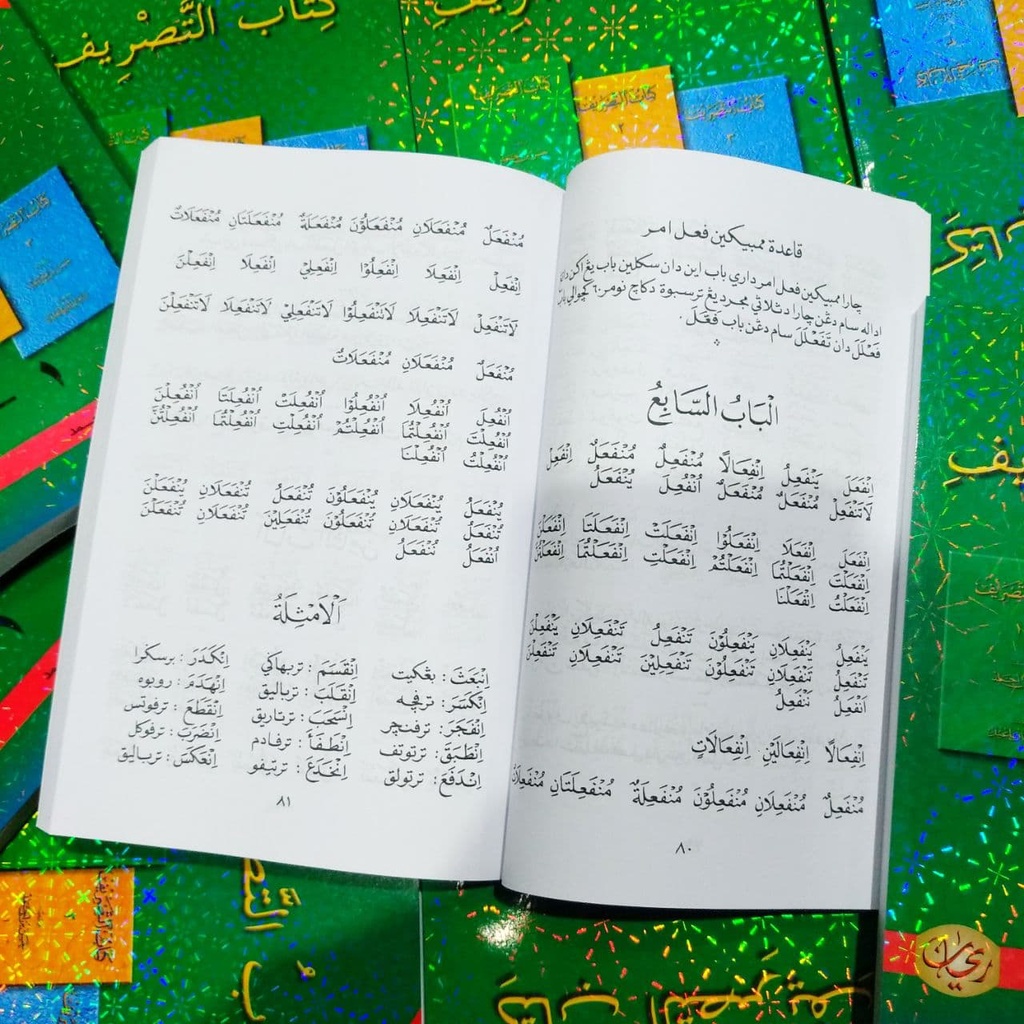 قاعدة ممبيكين فعل امر
چارا ممبيكين فعل امر داري باب اين دان سكلين باب يڠ اكن
اداله سام دڠن چارا دثلاثي مجرد يڠ ترسبوة دكاچ نومر ٦٠ كچوالي باب
فَعْلَلَ دان تَفَعْلَلَ سام دڠن باب فَعَّلَ .
اَلْبَابُ السَّابِعُ
اِنْفَعَلَ يَنْفَعِلُ اِنْفِعَالًا مُنْفَعِلٌ مُنْفَعَلٌ اِنْفَعِلْ
لَاتَنْفَعِلْ مُنْفَعَلٌ مُنْفَعَلٌ اُنْفُعِلَ يُنْفَعَلُ
اِنْفَعَلَ اِنْفَعَلَا اِنْفَعَلُوْا اِنْفَعَلَتْ اِنْفَعَلَتَا اِنْفَعَلْنَ
اِنْفَعَلْتَ اِنْفَعَلْتُمَا اِنْفَعَلْتُمْ اِنْفَعَلْتِ اِنْفَعَلْتُمَا اِنْفَعَلْتُنَّ
اِنْفَعَلْتُ اِنْفَعَلْنَا
يَنْفَعِلُ يَنْفَعِلَانِ يَنْفَعِلُوْنَ تَنْفَعِلُ تَنْفَعِلَانِ يَنْفَعِلْنَ
تَنْفَعِلُ تَنْفَعِلَانِ تَنْفَعِلُوْنَ تَنْفَعِلِيْنَ تَنْفَعِلَانِ تَنْفَعِلْنَ
اَنْفَعِلُ نَنْفَعِلُ
اِنْفِعَالًا اِنْفِعَالَيْنِ اِنْفِعَالَاتٍ
مُنْفَعِلٌ مُنْفَعِلَانِ مُنْفَعِلُوْنَ مُنْفَعِلَةٌ مُنْفَعِلَتَانِ مُنْفَعِلَاتٌ
٨٠
مُنْفَعَلٌ مُنْفَعَلَانِ مُنْفَعَلُوْنَ مُنْفَعَلَةٌ مُنْفَعَلَتَانِ مُنْفَعَلَاتٌ
اِنْفَعِلْ اِنْفَعِلَا اِنْفَعِلُوْا اِنْفَعِلِيْ اِنْفَعِلَا اِنْفَعِلْنَ
لَاتَنْفَعِلْ لَاتَنْفَعِلَا لَاتَنْفَعِلُوْا لَاتَنْفَعِلِيْ لَاتَنْفَعِلَا لَاتَنْفَعِلْنَ
مُنْفَعَلٌ مُنْفَعَلَانِ مُنْفَعَلَاتٌ
اُنْفُعِلَ اُنْفُعِلَا اُنْفُعِلُوْا اُنْفُعِلَتْ اُنْفُعِلَتَا اُنْفُعِلْنَ
اُنْفُعِلْتَ اُنْفُعِلْتُمَا اُنْفُعِلْتُمْ اُنْفُعِلْتِ اُنْفُعِلْتُمَا اُنْفُعِلْتُنَّ
اُنْفُعِلْتُ اُنْفُعِلْنَا
يُنْفَعَلُ يُنْفَعَلَانِ يُنْفَعَلُوْنَ تُنْفَعَلُ تُنْفَعَلَانِ يُنْفَعَلْنَ
تُنْفَعَلُ تُنْفَعَلَانِ تُنْفَعَلُوْنَ تُنْفَعَلِيْنَ تُنْفَعَلَانِ تُنْفَعَلْنَ
اُنْفَعَلُ نُنْفَعَلُ
اَلْاَمْثِلَةُ
اِنْبَعَثَ : بڠكيت اِنْقَسَمَ : تربهاڬي اِنْكَدَرَ : برسكرا
اِنْكَسَرَ : ترفچه اِنْقَلَبَ : ترباليق اِنْهَدَمَ : روبوه
اِنْفَجَرَ : ترفنچر اِنْسَحَبَ : ترتاريق اِنْقَطَعَ : ترفوتس
اِنْطَبَقَ : ترتوتف اِنْطَفَأَ : ترفادم اِنْضَرَبَ : ترفوكل
اِنْدَفَعَ : ترتولق اِنْخَدَعَ : ترتيفو اِنْعَكَسَ : ترباليق
٨١
كِتَابُ التَّصْرِيفِ